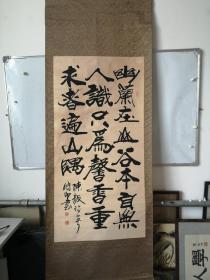 幽蘭在山谷本自無
人識只為馨香重
求者遍山隅
陳毅詩